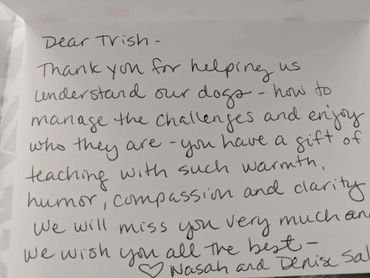 Dear Trish -
Thank you for helping us
understand our dogs - how to
manage the challenges and enjoy
who they are - you have a gift of
teaching with such warmth,
humor, compassion and clarity
We will miss you very much an
we wish you all the best -
♡ Nasah and Denise Sal